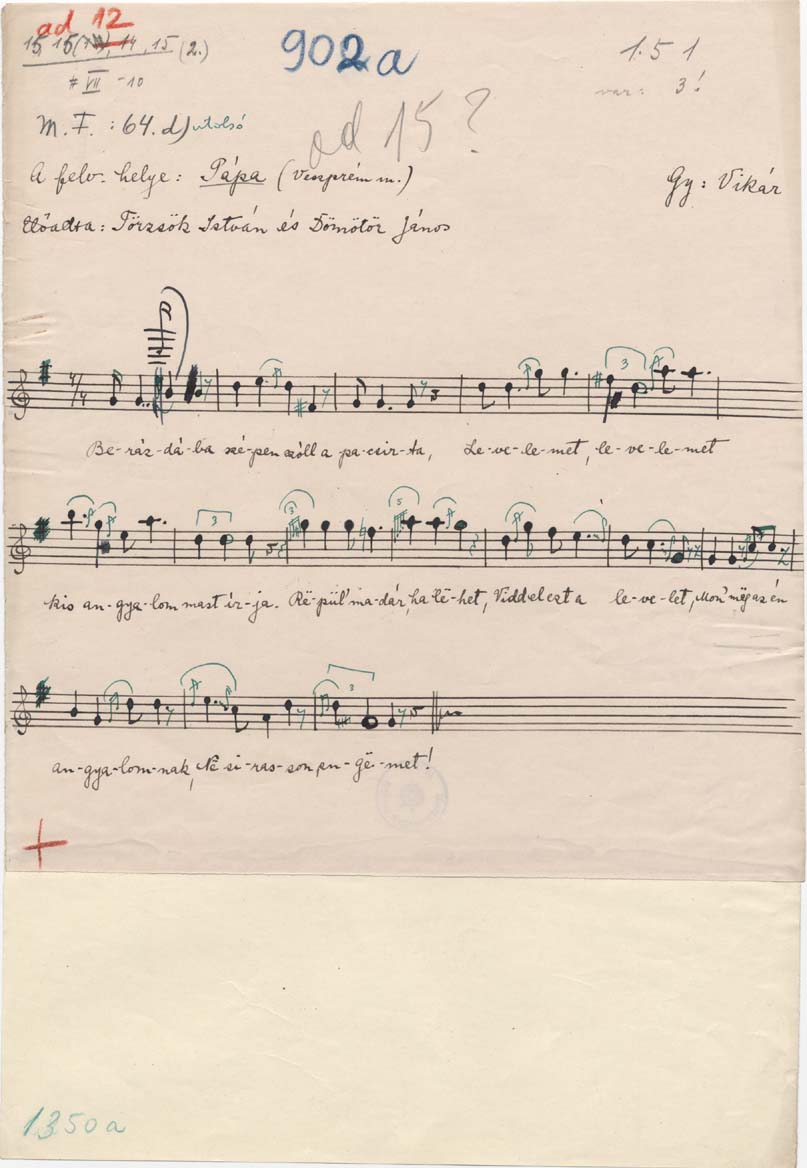 ad 12
902a
1.5 1
(2.)
VII -10
var: 3!
M. F. : 64. d) utolsó
ad 15?
A felv. helye: Pápa (Veszprém m.)
Gy: Vikár
Előadta: Törzsök István és Dömötör János
4/4
3
Be-ráz-dá-ba szé-pen szóll a pa-csir-ta, Le-ve-le-met, le-ve-le-met
3 3 5
kis an-gya-lom mast ír-ja. Rë-pül' ma-dár, ha lë-het, Viddel ezt a le-ve-let, Mon' mëg az én
3
an-gya-lom-nak, Në si-ras-son en-gë-met!
1350a